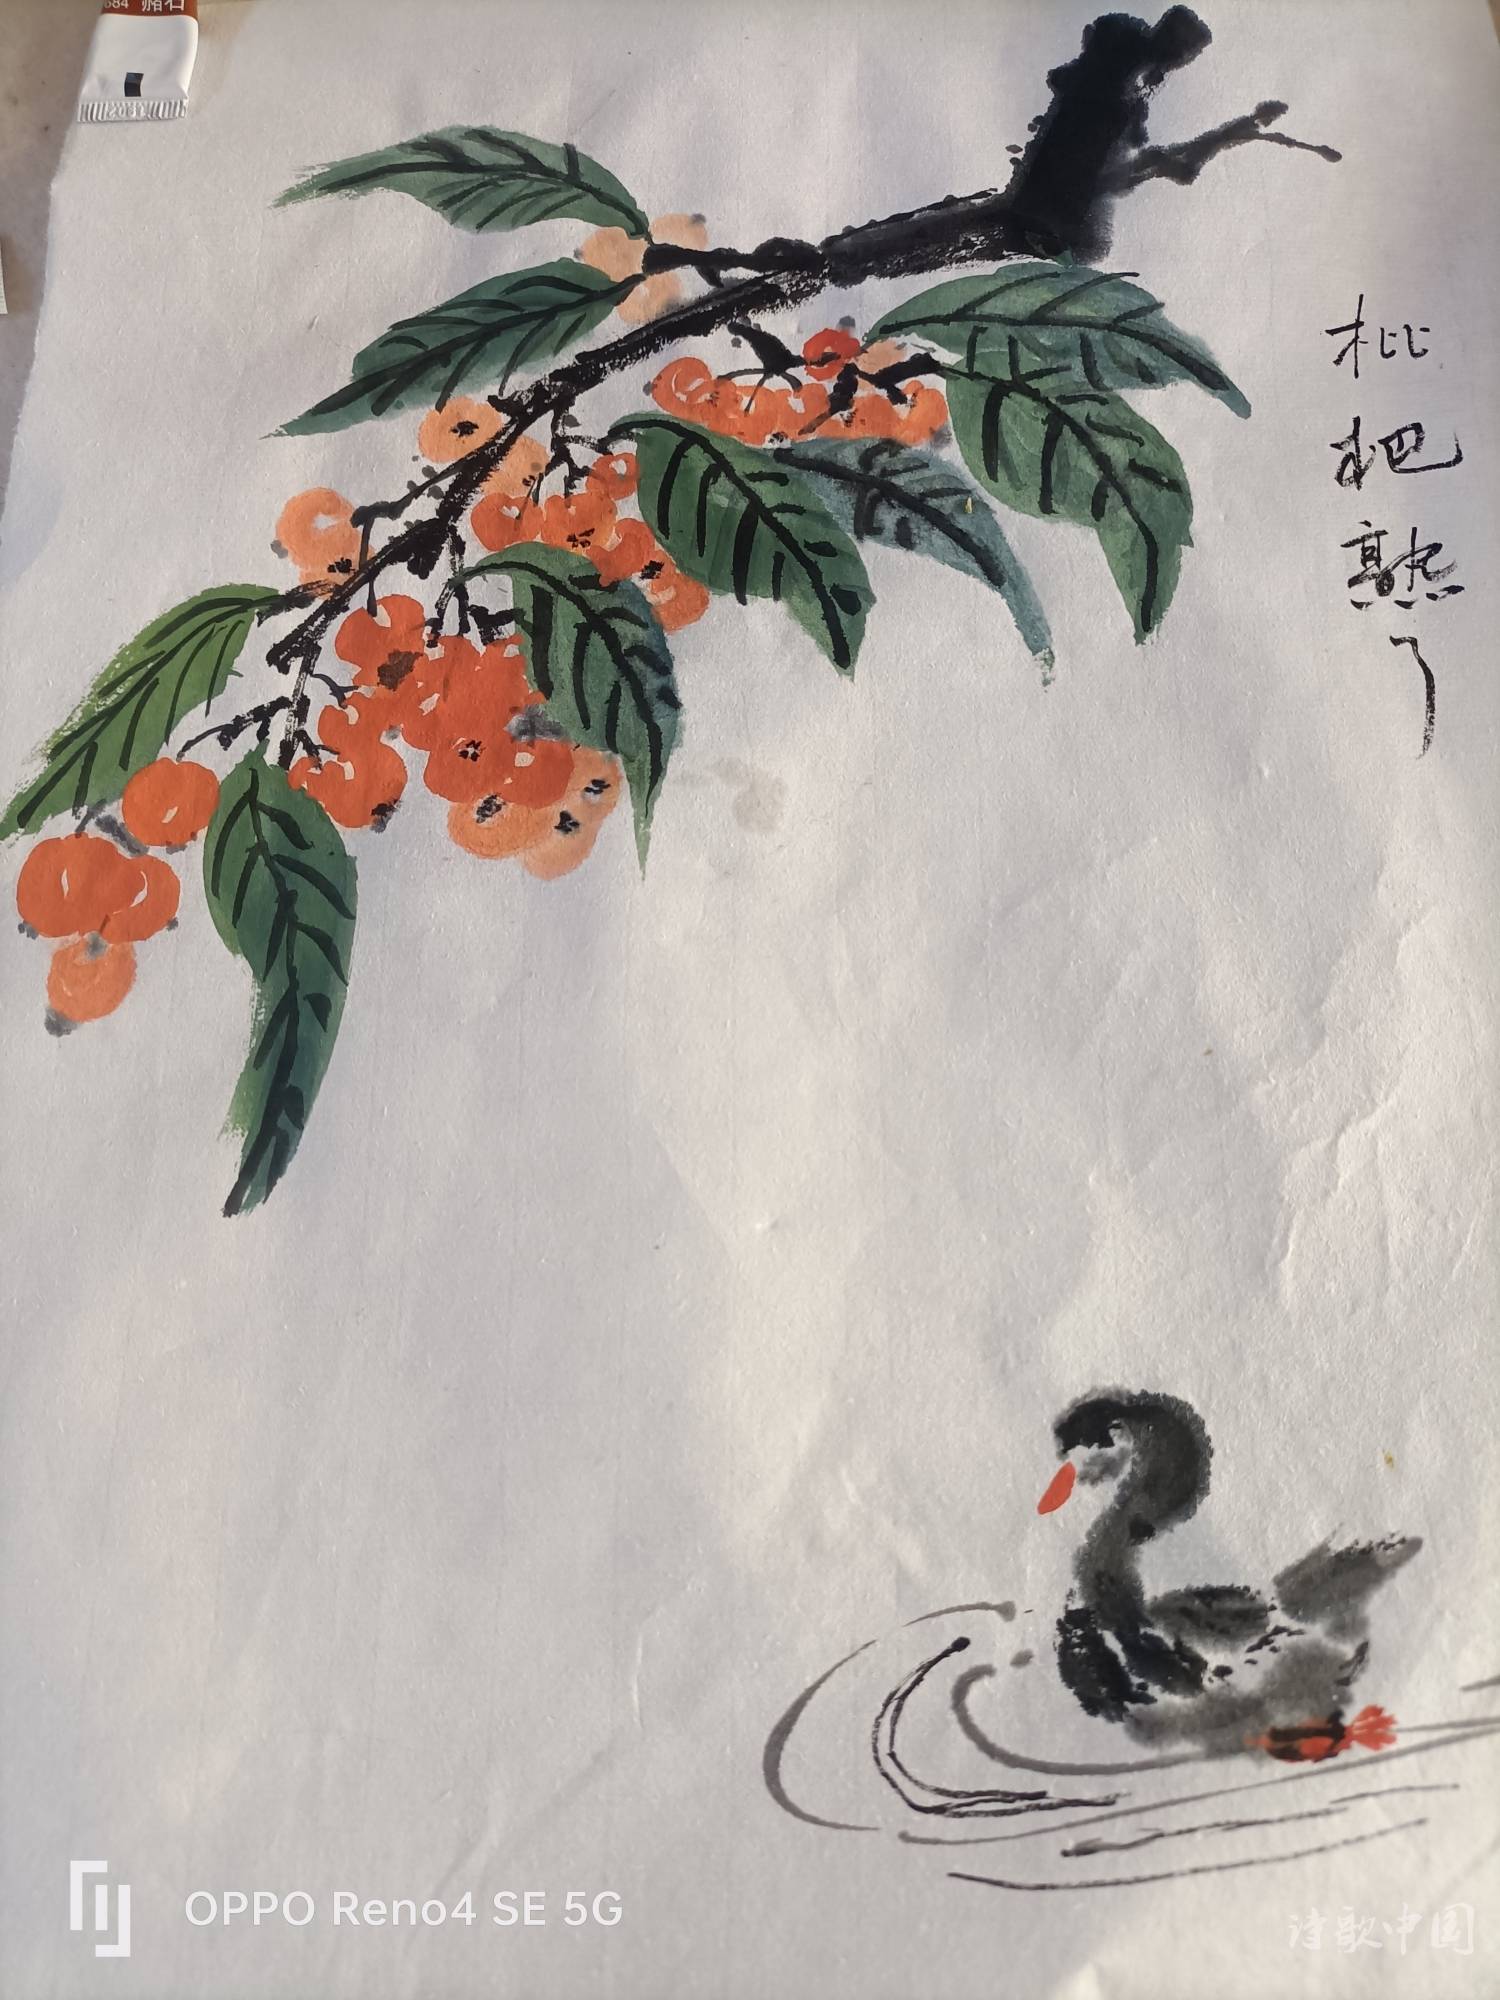 684 赭石
枇杷熟了
OPPO Reno4 SE 5G
诗歌中国